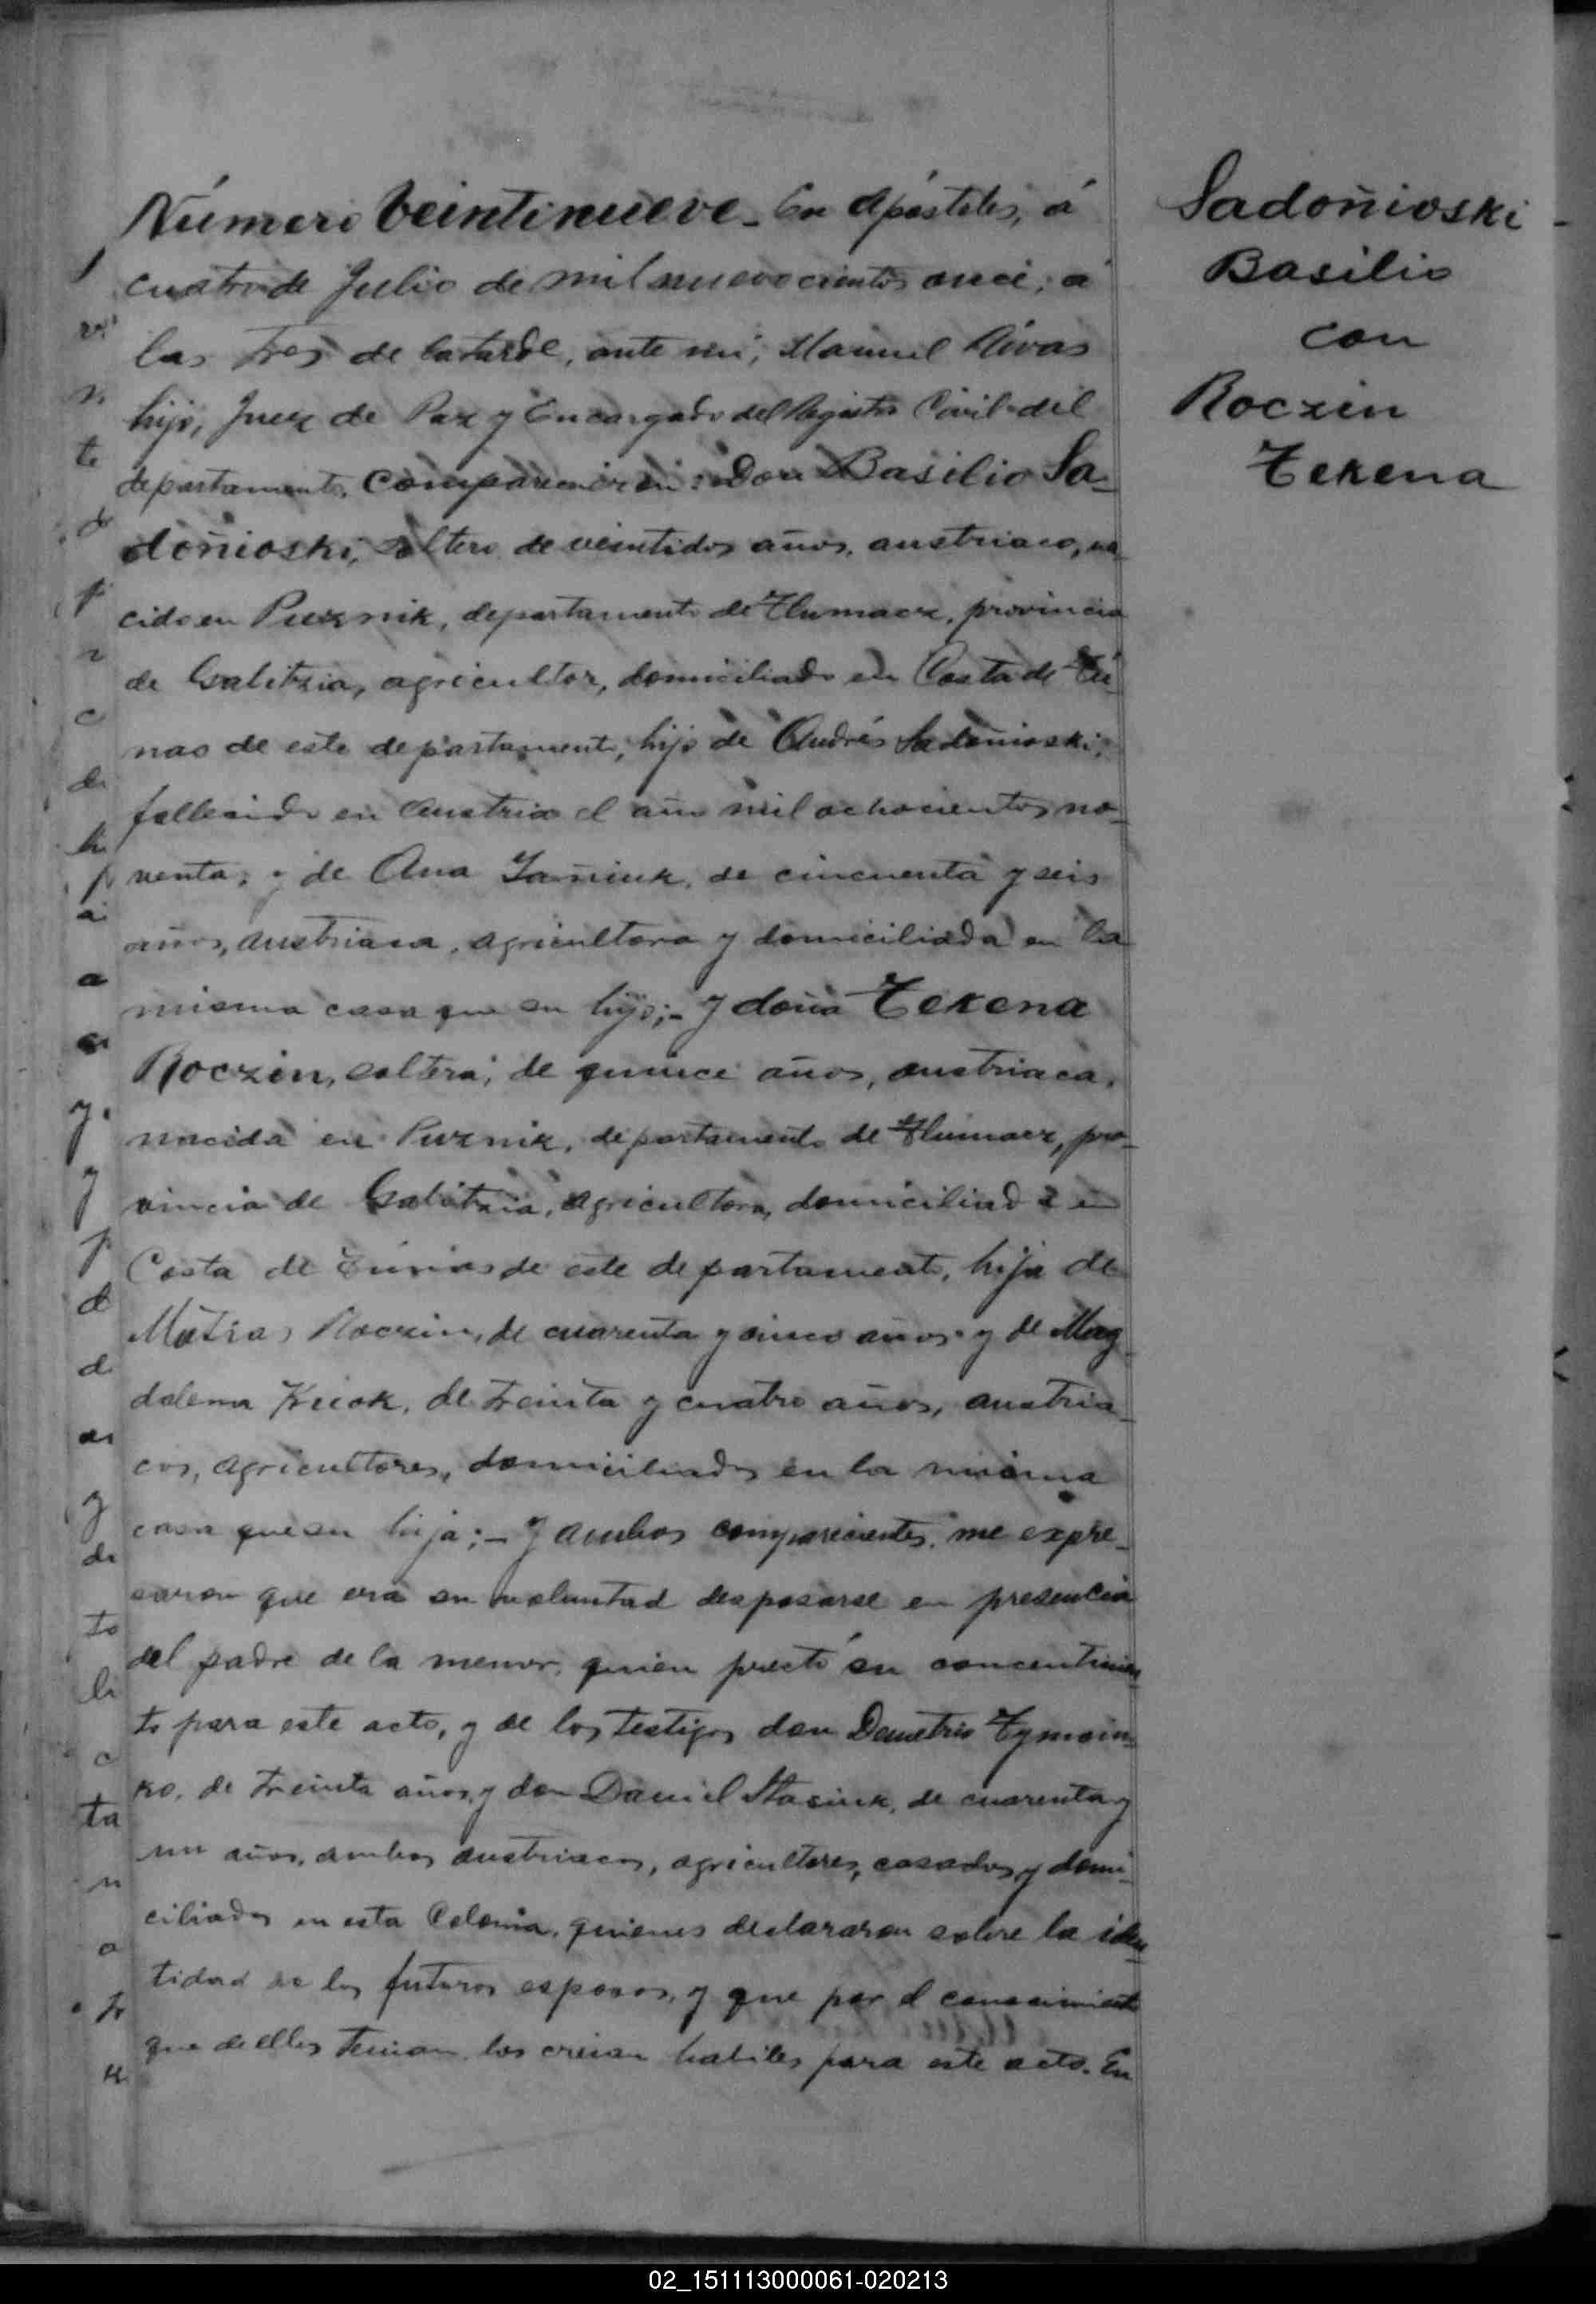 Número Veintinueve - En Apóstoles, á
cuatro de Julio de mil nuevecientos once, á
las tres de la tarde, ante mi, Manuel Rivas
hijo, Juez de Paz y Encargado del Registro Civil del
departamento, comparecieron: Don Basilio Sa-
doñioski, soltero, de veintidos años, austriaco, na-
cido en Puznik, departamento de Tlumacz, provincia
de Galitzia, agricultor, domiciliado en Costa de Tu-
nas de este departamento, hijo de Andrés Sadoñioski,
fallecido en Austria el año mil ochocientos no-
venta; y de Ana Iañiuk, de cincuenta y seis
años, austriaca, agricultora y domiciliada en la
misma casa que su hijo; - y doña Tekena
Roczin, soltera, de quince años, austriaca,
nacida en Puznik, departamento de Tlumacz, pro-
vincia de Galitzia, agricultora, domiciliada en
Costa de Tunas de este departamento, hija de
Matias Roczin, de cuarenta y cinco años y de Mag-
dalena Kucok, de treinta y cuatro años, austria-
cos, agricultores, domiciliados en la misma
casa que su hija; - y ambos comparecientes, me expre-
saron que era su voluntad desposarse en presencia
del padre de la menor, quien prestó su concentimien
to para este acto, y de los testigos don Demetrio Tymoin-
ko, de treinta años, y don Daniel Stasiuk, de cuarenta y
un años, ambos austriacos, agricultores, casados y domi-
ciliados en esta Colonia, quienes declararon sobre la iden
tidad de los futuros esposos, y que por el conocimiento
que de ellos tenian, los creian habiles para este acto. En
Sadoñioski
Basilio
con
Roczin
Tekena
02_151113000061-020213